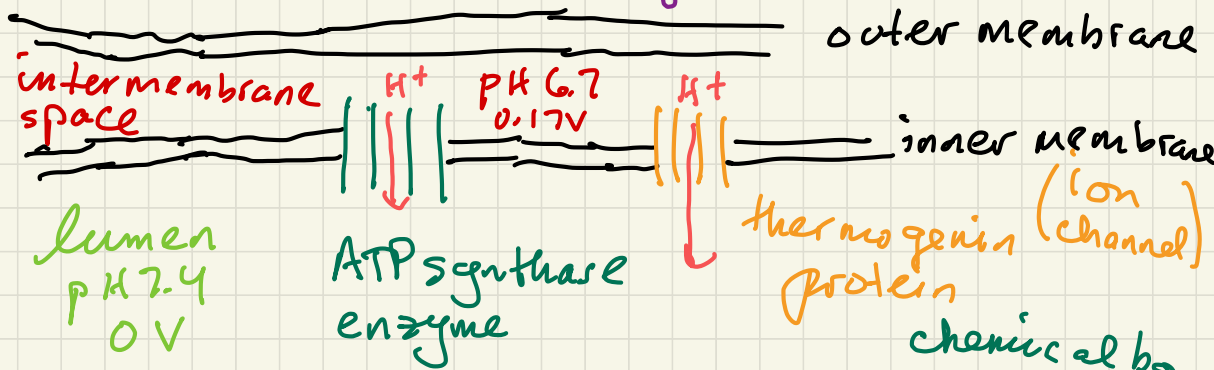 outer membrane
intermembrane
space
H+
pH 6.7
0.17V
H+
inner membrane
(ion
channel)
lumen
pH 7.4
0 V
ATP synthase
enzyme
thermogenin
protein
chemical